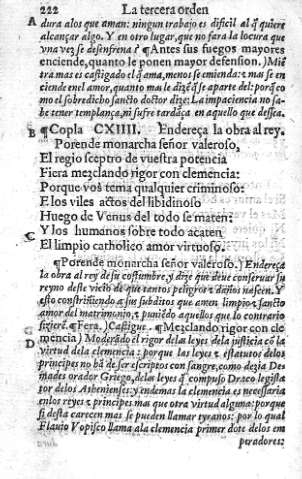 222 La tercera orden
A dura alos que aman: ningun trabajo es dificil al q̃ quiere
alcançar algo. Y en otro lugar, que no fara la locura que
vna vez se desenfrena? ¶Antes sus fuegos mayores
enciende, quanto le ponen mayor defension.) Miẽ
tra mas es castigado el q̃ ama, menos se emienda: e mas se en
ciende en el amor, quanto mas le dizẽ q̃ se aparte del: porq̃ co
mo el sobredicho sancto doctor dize: La impaciencia no sa-
be tener templança, ni sufre tardãça en aquello que dessea.
B ¶Copla CXIIII. Endereça la obra al rey.
Porende monarcha señor valeroso,
El regio sceptro de vuestra potencia
Fiera mezclando rigor con clemencia:
Porque vos tema qualquier criminoso:
E los viles actos del libidinoso
Huego de Venus del todo se maten:
C Y los humanos sobre todo acaten
El limpio catholico amor virtuoso.
¶Porende monarcha señor valeroso.) Endereça
la obra al rey de su costumbre, y dize que deue conseruar su
reyno deste vicio de que tantos peligros e daños nascen. Y
esto constriñiendo a sus subditos que amen limpio e sancto
amor del matrimonio, e puniẽdo aquellos que lo contrario
fizierẽ. ¶Fera.) Castigue. ¶Mezclando rigor con cle
D mencia) Moderãdo el rigor delas leyes dela justicia cõ la
virtud dela clemencia: porque las leyes e estatutos delos
principes no hã de ser escriptos con sangre, como dezia De
mades orador Griego, delas leyes q̃ compuso Draco legista
tor delos Athenienses: y endemas la clemencia es necessaria
en los reyes e principes mas que otra virtud alguna: porque
si desta carecen mas se pueden llamar tyranos: por lo qual
Flauio Vopisco llama la clemencia primer dote delos em
peradores: